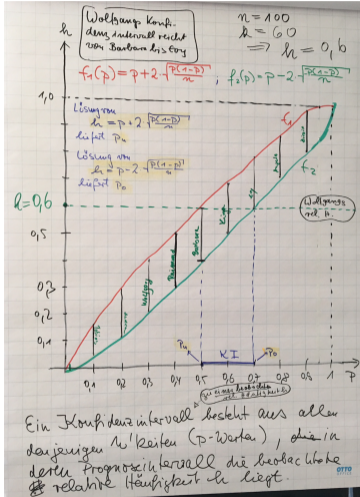 Wolfgangs Konfi-
denzintervall reicht
von Barbara bis tory
n = 100
k = 60
⇒ h = 0,6
h
f₁(p) = p + 2·√(p(1-p)/n) , f₂(p) = p - 2·√(p(1-p)/n)
1,0
Lösung von
h = p + 2·√(p(1-p)/n)
liefert pᵤ
Lösung von
h = p - 2·√(p(1-p)/n)
liefert pₒ
f₁
f₂
h = 0,6
Wolfgangs
rel. h.
0,5
Barbara
0,3
0,2
0,1
pᵤ
KI
pₒ
0,1 0,2 0,3 0,4 0,5 0,6 0,7 0,8 0,9 1 p
Ein Konfidenzintervall besteht aus allen
denjenigen W'keiten (p-Werten), die in
deren Prognoseintervall die beobachtete
relative Häufigkeit h liegt.
OTTO